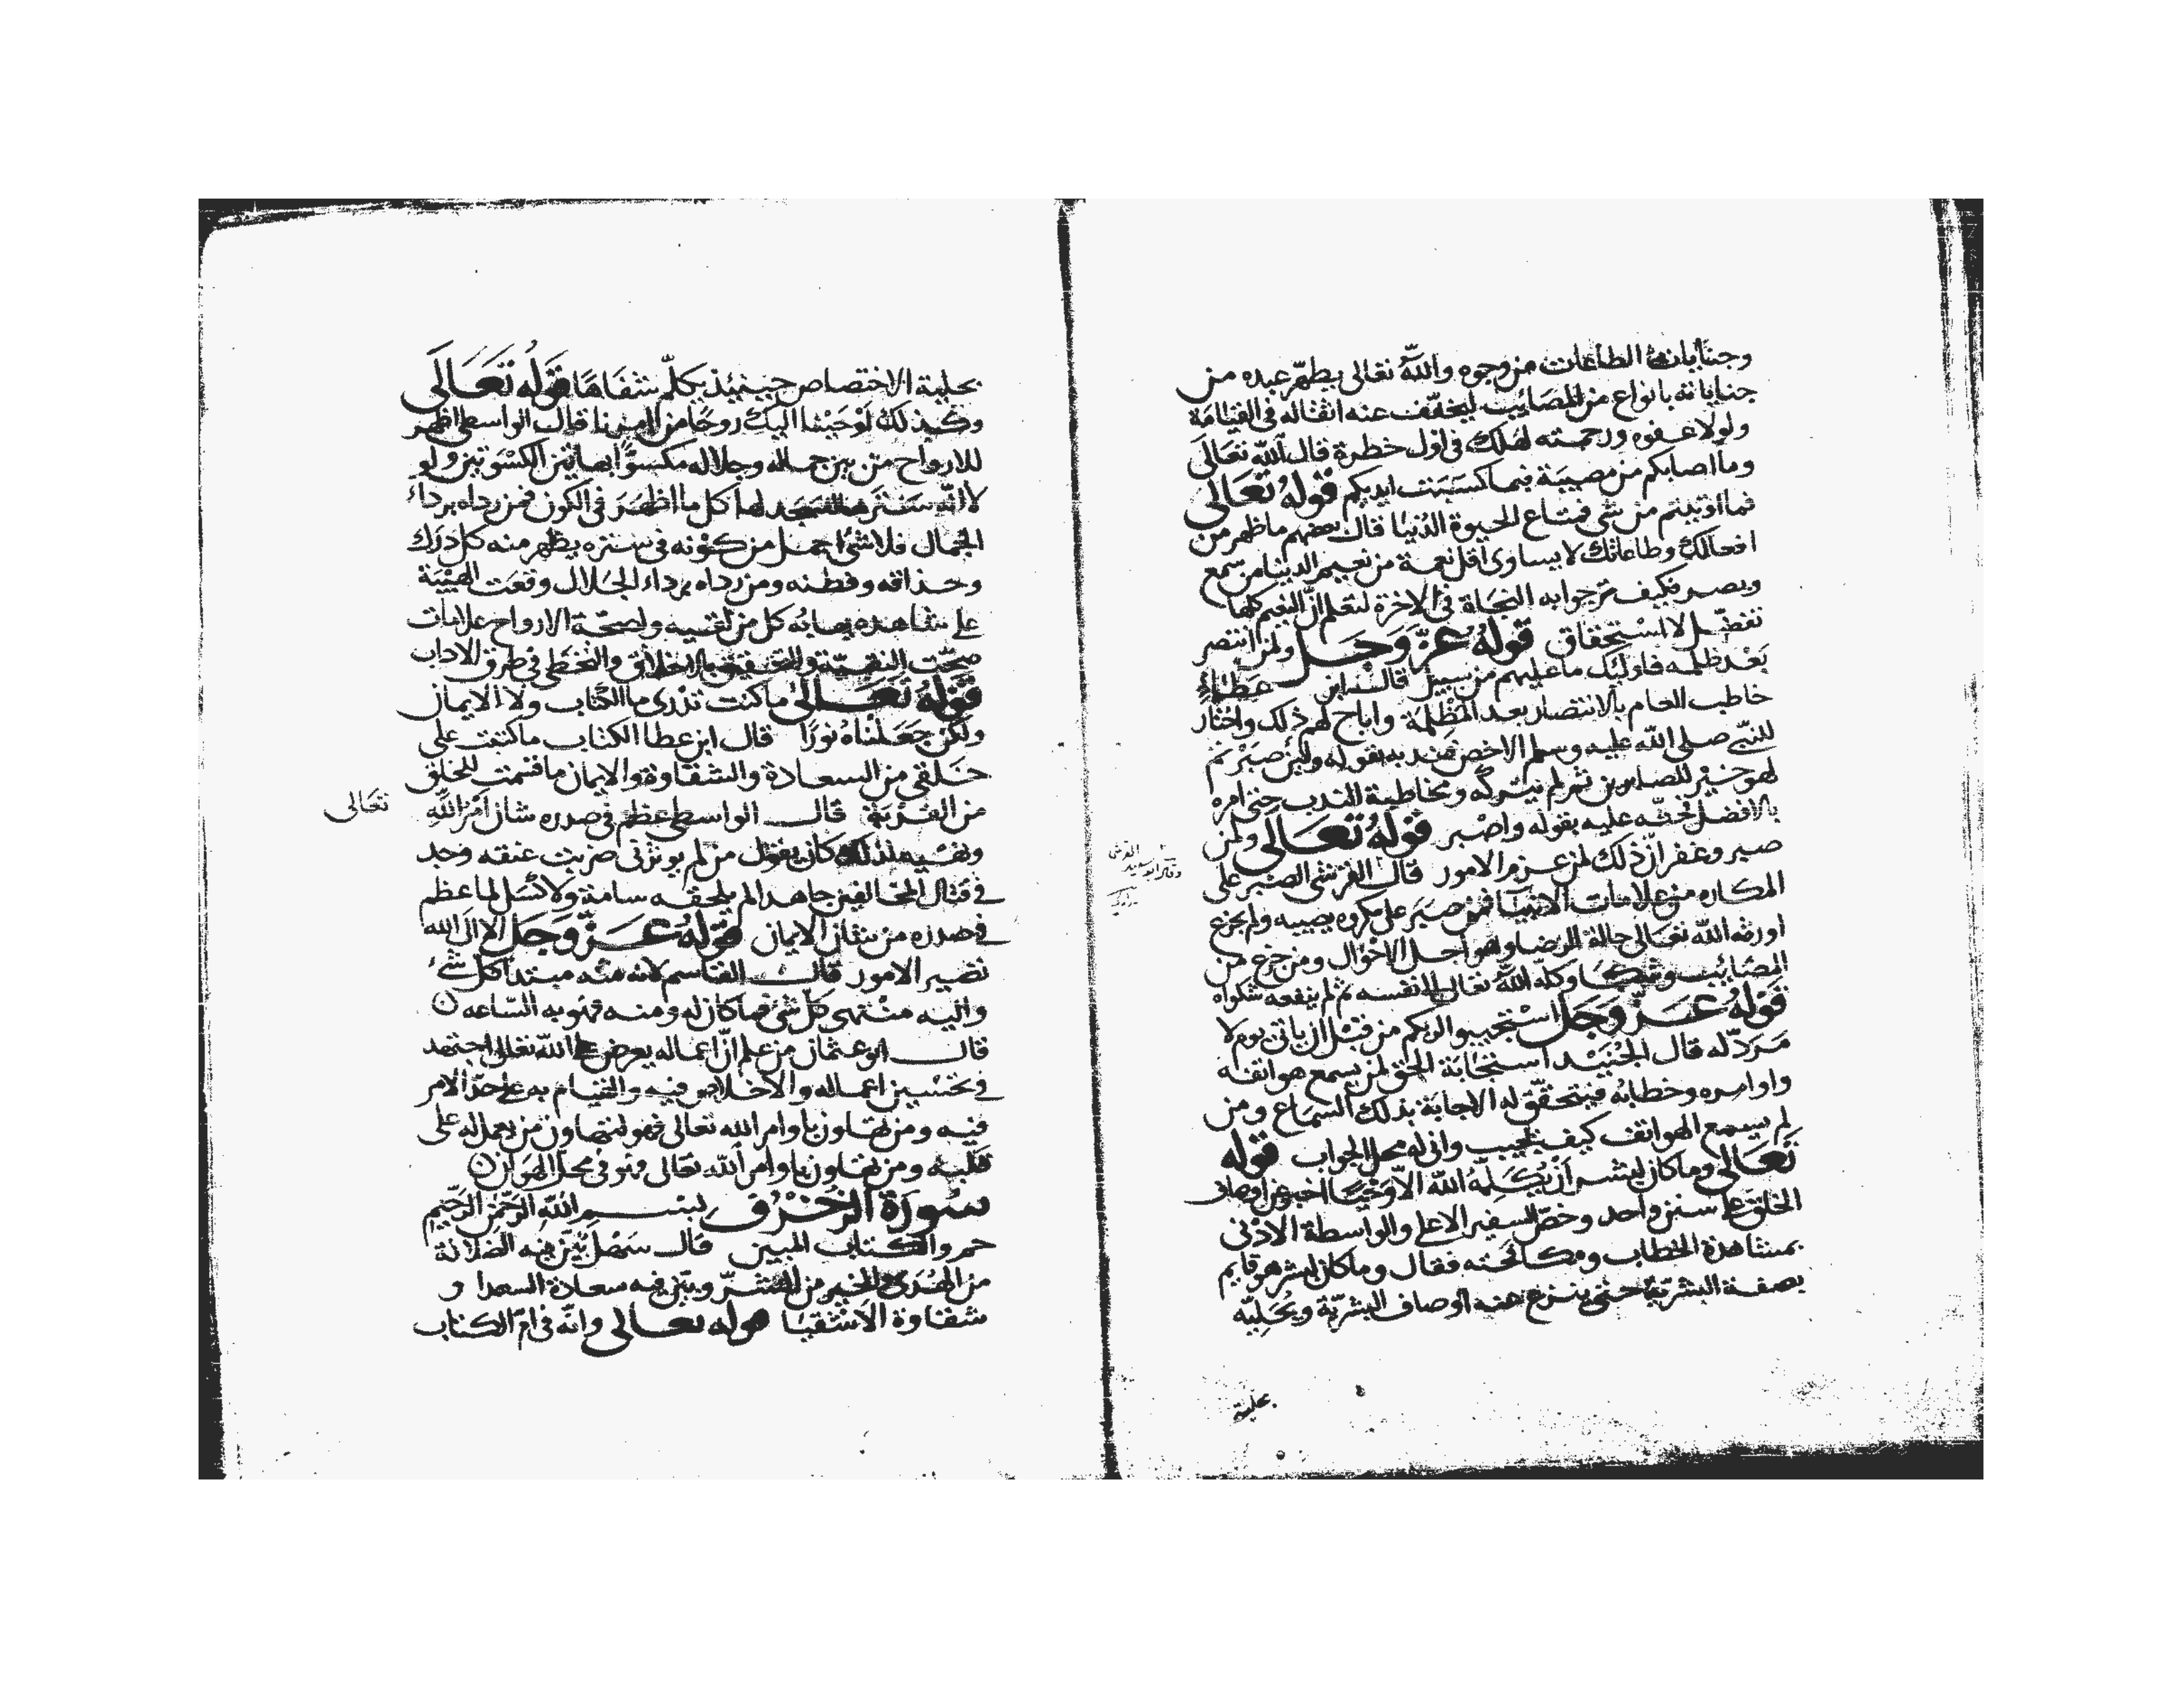 وجناياته في الطاعات من وجوه والله تعالى يطهر عبده من
جناياته بانواع من المصائب ليخفف عنه اثقاله فى القيامة
ولولا عفوه ورحمته لهلك فى اول خطرة قال الله تعالى
وما اصابكم من مصيبة فبما كسبت ايديكم قوله تعالى
فما اوتيتم من شى فمتاع الحيوة الدنيا قال بعضهم ما ظهر من
افعالك وطاعاتك لا يساوى اقل نعمة من نعيم الدنيا من سمع
وبصر فكيف ترجوا به النجاة فى الاخرة لتعلم ان النعيم كلها
تفضل لا استحقاق قوله عز وجل ولمن انتصر
بعد ظلمه فاوليك ما عليهم من سبيل قال ابن عطاء
خاطب العام بالانتصار بعد المظلمة واباح لهم ذلك واختار
للنبي صلى الله عليه وسلم الاخص فندبه بقوله ولئن صبرتم
لهو خير للصابرين ثم لم يتركه ومخاطبة الندب حتى امره
بالافضل فحثه عليه بقوله واصبر قوله تعالى ولمن
صبر وغفر ان ذلك لمن عزم الامور قال القرشى الصبر على
المكاره من علامات الانبيا فمن صبر على مكروه يصيبه ولم يجزع
اورثه الله تعالى حالة الرضا وهو اجل الاحوال ومن جزع من
المصائب وشكا وكله الله تعالى الى نفسه ثم لم ينفعه شكواه
قوله عز وجل استجيبوا لربكم من قبل ان ياتى يوم لا
مرد له قال الجنيد استجابة الحق لمن يسمع هواتفه
واوامره وخطابه فيتحقق له الاجابة بذلك السماع ومن
لم يسمع الهواتف كيف يجيب وانى له محل الجواب قوله
تعالى وما كان لبشر ان يكلمه الله الا وحيا اخبر عن اوصاف
الخلق على سنن واحد وخص السفير الاعلى والواسطة الادنى
بمشاهدة الخطاب ومكافحته فقال وما كان لبشر هو قايم
بصفة البشرية حتى ينزع عنه اوصاف البشرية ويحليه
بحلية
بحلية الاختصاص حينئذ يكلم شفاها قوله تعالى
وكذلك اوحينا اليك روحا من امرنا قال الواسطى اظهر
للارواح من بين جماله وجلاله مكسوا بهاتين الكسوتين ولو
لا انه ستر لسجد لها كل ما اظهر فى الكون فمن رداه برداء
الجمال فلا شئ اجمل من كونه فى ستره يظهر منه كل درك
وحذاقه وفطنه ومن رداه برداء الجلال وقعت الهيبة
على شاهده يهابه كل من لقيه ولصحة الارواح علامات
صحت بالاخلاق والتخطى فى طرق الاداب
قوله تعالى ما كنت تدرى ما الكتاب ولا الايمان
ولكن جعلناه نورا قال ابن عطا الكتاب ما كتبت على
خلقى من السعادة والشقاوة والايمان ما قسمت للخلق
من القربة قال الواسطى عظم فى صدره شان امر الله
تعالى
ونهيه لذلك كان يقول من لم يوترنى ضربت عنقه وجد
فى قتال المخالفين جاهدا لم يلحقه سامة ولا كسل لما عظم
فى صدره من شان الايمان قوله عز وجل الا الى الله
تصير الامور قال القاسم لانه منه مبتدا كل شئ
واليه منتهى كل شئ فما كان له ومنه فهو به الساعه
قال ابو عثمان من علم ان اعماله يعرض على الله تعالى اجتهد
فى تحسين اعماله والاخلاص فيه والقيام به على حد الامر
فيه ومن تهاون باوامر الله تعالى فهو لتهاون من يعمل له على
قلبه ومن تهاون باوامر الله تعالى فهو فى محل الهوان
سورة الزخرف بسم الله الرحمن الرحيم
حم والكتاب المبين قال سهل بين فيه الضلالة
من الهدى والخير من الشر وبين فيه سعادة السعدا و
شقاوة الاشقيا قوله تعالى وانه فى ام الكتاب